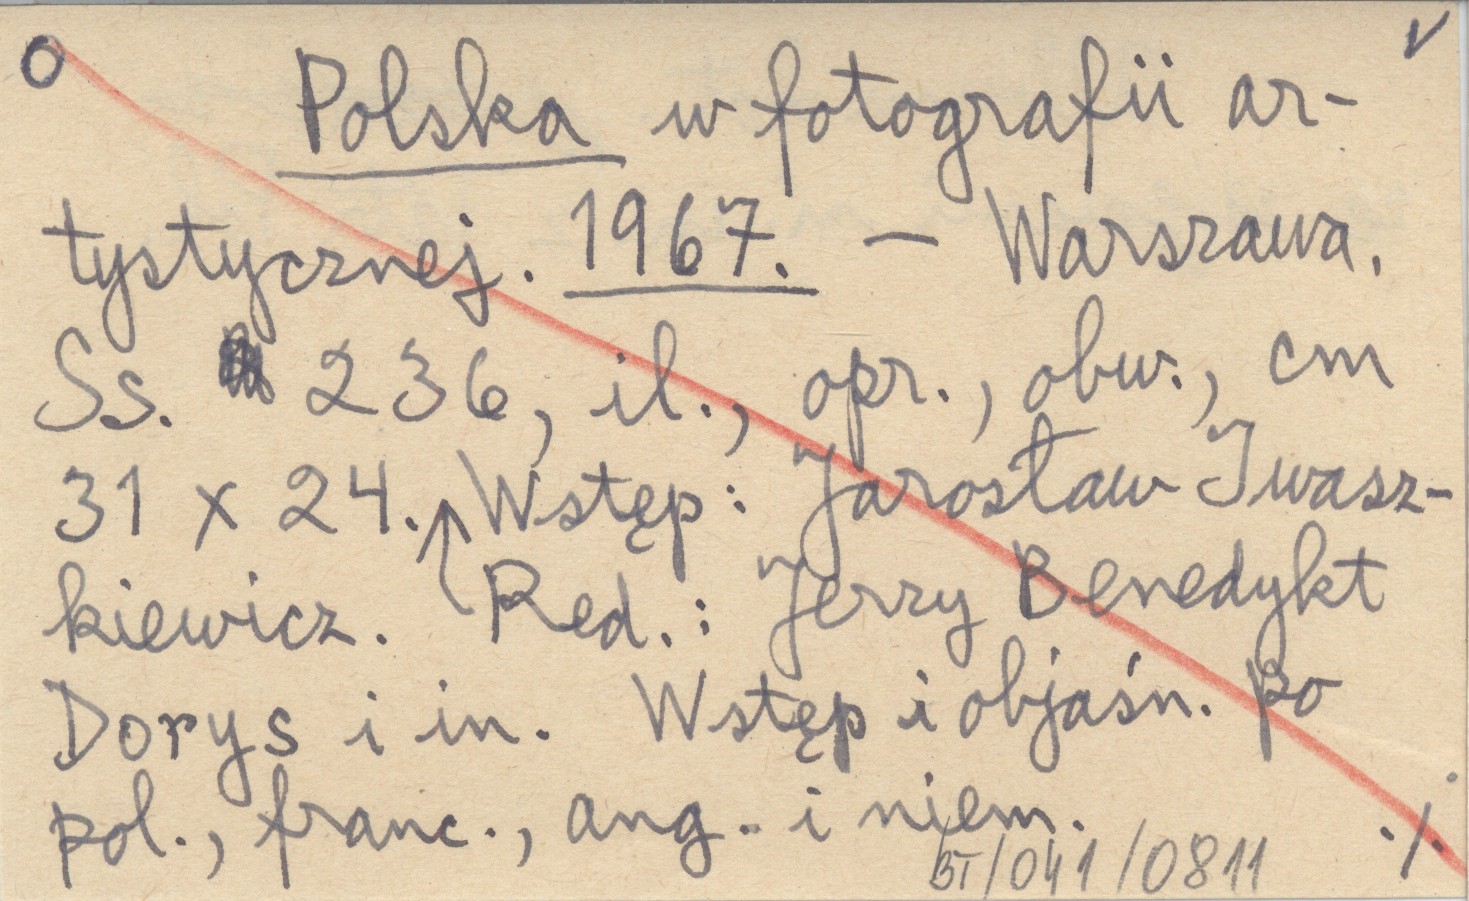 O Polska w fotografii ar- v
tystycznej. 1967. — Warszawa.
Ss. 236, il., opr., obw., cm
31 x 24. Wstęp: Jarosław Iwasz-
kiewicz. Red.: Jerzy Benedykt
Dorys i in. Wstęp i objaśn. po
pol., franc., ang. i niem. ./.
BT/041/0811